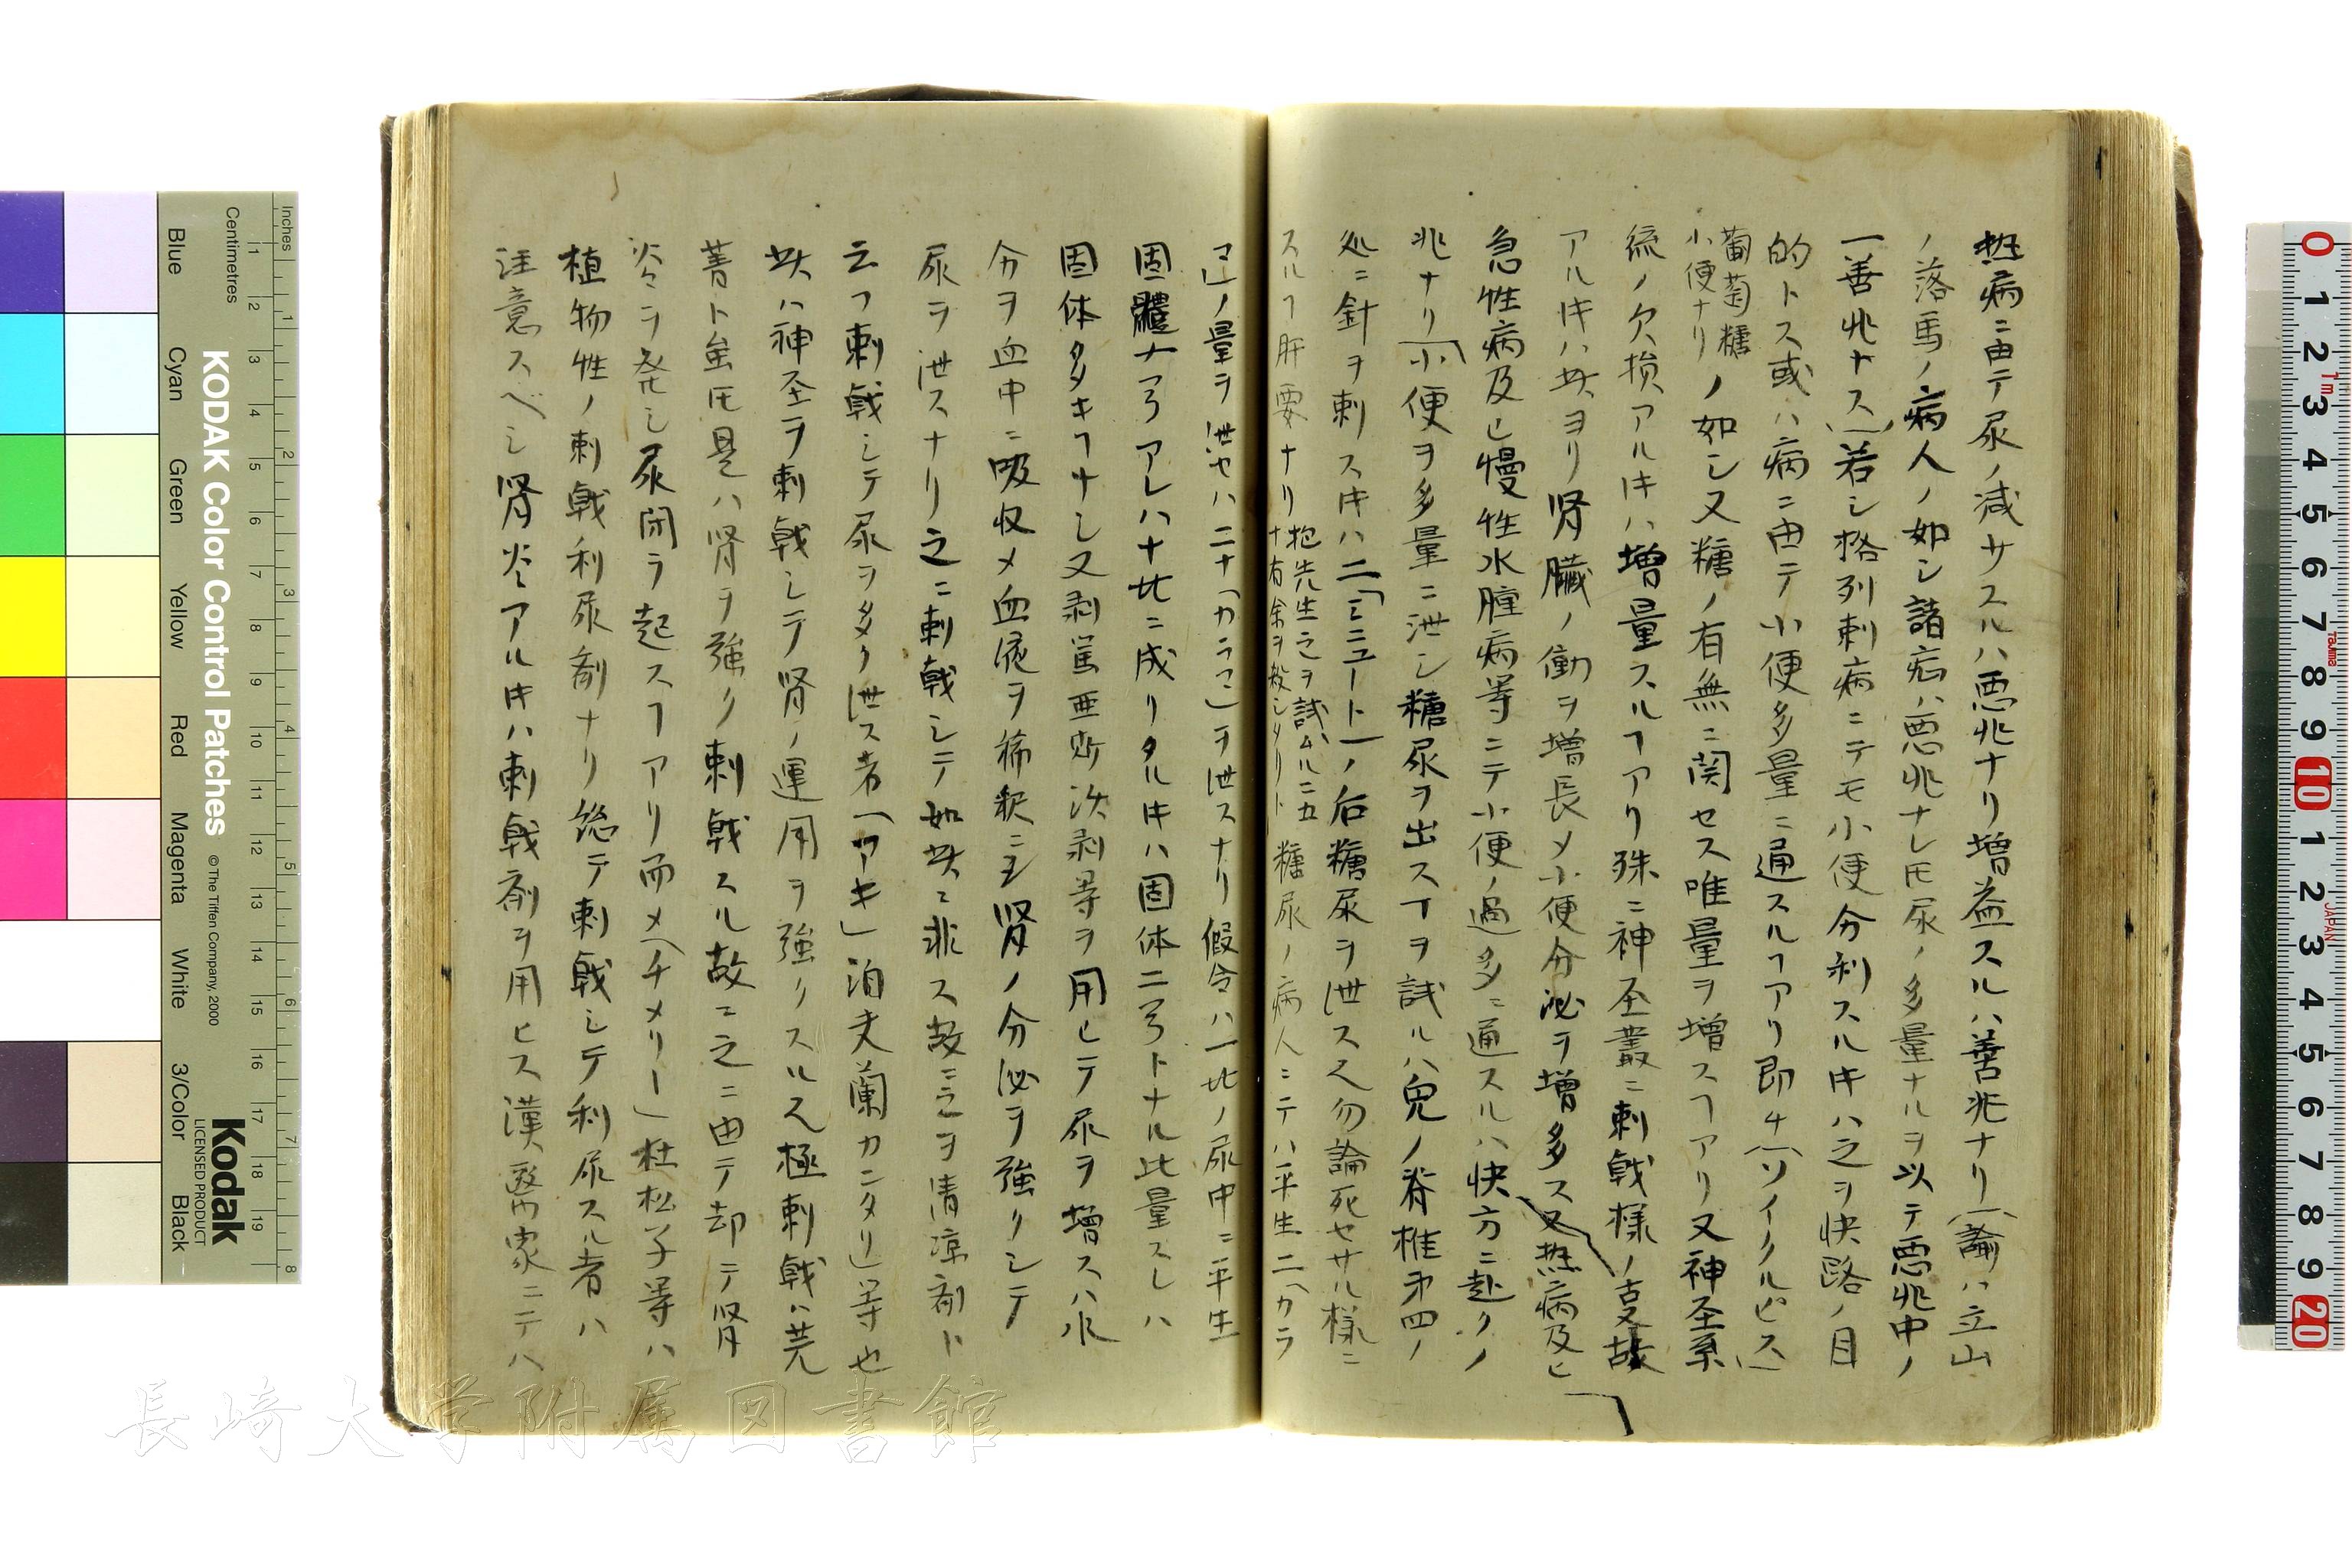 熱病ニ由テ尿ノ減サスルハ悪兆ナリ増益スルハ善兆ナリ「諭ハ立山
ノ落馬ノ病人ノ如シ諸病ハ悪兆ナレ𪜈尿ノ多量ナルヲ以テ悪兆中ノ
一善兆ナス」若シ格列刺病ニテモ小便分利スルキハ之ヲ快路ノ目
的トス或ハ病ニ由テ小便多量ニ通スルヿアリ即チ「ソイクルピス」
葡萄糖
小便ナリ
ノ如シ又糖ノ有無ニ関セス唯量ヲ増スヿアリ又神圣系
統ノ欠損アルキハ増量スルヿアリ殊ニ神圣叢ニ刺戟様ノ
アルキハ此ヨリ腎臓ノ働ヲ増長メ小便分泌ヲ増多ス又熱病及ヒ
急性病及ヒ慢性水腫病等ニテ小便ノ過多ニ通スルハ快方ニ赴クノ
兆ナリ「小便ヲ多量ニ泄シ糖尿ヲ出スヿヲ試ルハ兎ノ脊椎第四ノ
処ニ針ヲ刺スキハ二「ミニュート」ノ后糖尿ヲ泄ス又勿論死セサル様ニ
スルヿ肝要ナリ
抱先生之ヲ試ムルニ五
十有余ヲ殺シタリト
糖尿ノ病人ニテハ平生二「カラ
マ」ノ量ヲ泄セハ二十「カラマ」ヲ泄スナリ假令ハ一比ノ尿中ニ平生
固體十弓アレハ十比ニ成リタルキハ固体二弓トナル此量スレハ
固体多キヿナシ又剥篤亜斯次剥等ヲ用ヒテ尿ヲ増スハ水
分ヲ血中ニ吸収メ血液ヲ稀釈ニシ腎ノ分泌ヲ強クシテ
尿ヲ泄スナリ之ニ刺戟シテ如此ニ非ス故ニ之ヲ清涼剤ト
云フ刺戟シテ尿ヲ多ク泄ス者「アキ」泊夫蘭カンタリ等也
此ハ神圣ヲ刺戟シテ腎ノ運用ヲ強クスル又極刺戟ハ芫
菁ト虽𪜈是ハ腎ヲ強ク刺戟スル故ニ之ニ由テ却テ腎
炎ヲ発シ尿閉ヲ起スヿアリ而メ「チメリー」杜松子等ハ
植物性ノ刺戟利尿剤ナリ総テ刺戟シテ利尿スル者ハ
注意スベシ腎炎アルキハ刺戟剤ヲ用ヒス漢醫家ニテハ
長崎大学附属図書館
KODAK Color Control Patches
© The Tiffen Company, 2000
Kodak
LICENSED PRODUCT
Inches
Centimetres
Blue
Cyan
Green
Yellow
Red
Magenta
White
3/Color
Black